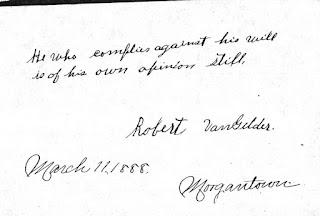 He who complies against his will
is of his own opinion still,
Robert VanGelder.
March 11, 1888.
Morgantown